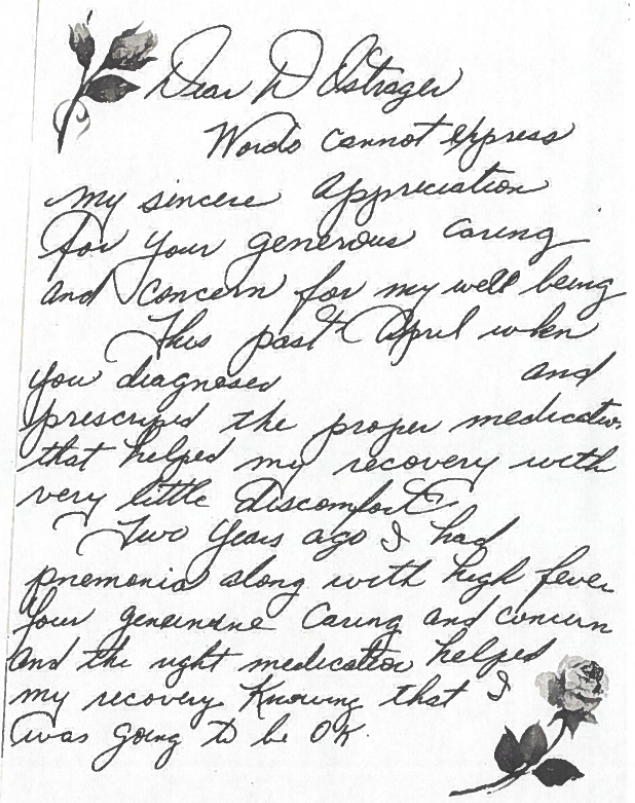 Dear D Ostrager
Words cannot express
my sincere appreciation
for your generous caring
and concern for my well being
This past April when
you diagnosed and
prescribed the proper medication
that helped my recovery with
very little discomfort
Two years ago I had
pnemonia along with high fever
Your geneindne caring and concern
and the right medication helped
my recovery Knowing that I
was going to be OK.